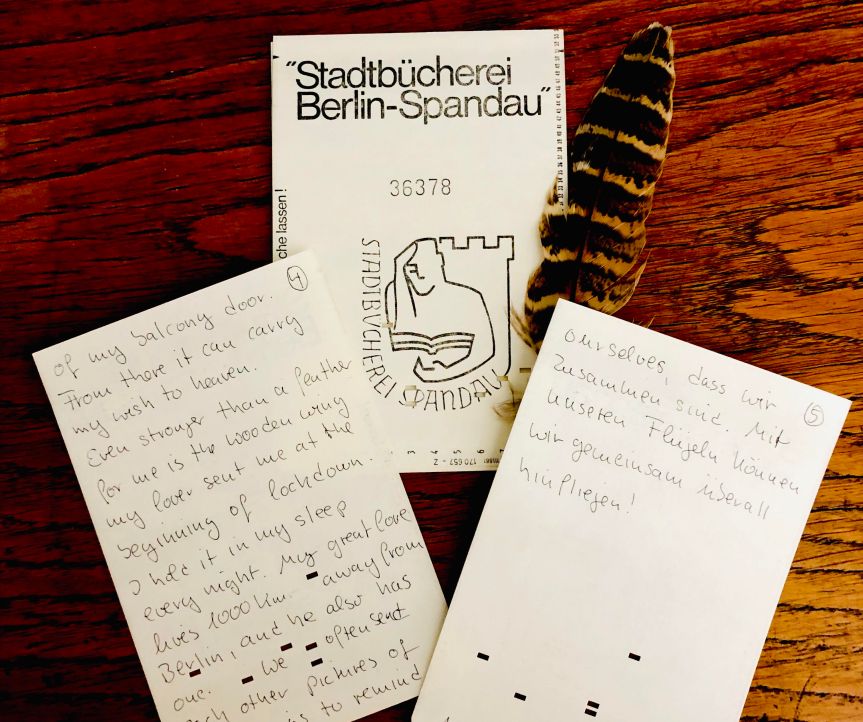 "Stadtbücherei
Berlin-Spandau"
36378
che lassen!
STADTBÜCHEREI
SPANDAU
170 657 - Z
4
of my balcony door.
From there it can carry
my wish to heaven.
Even stronger than a feather
for me is the wooden wing
my lover sent me at the
beginning of lockdown.
I hold it in my sleep
every night. My great love
lives 1000 km. away from
Berlin, and he also has
one. We often send
each other pictures of
to remind
5
ourselves, dass wir
zusammen sind. Mit
unseren Flügeln können
wir gemeinsam überall
hinfliegen!